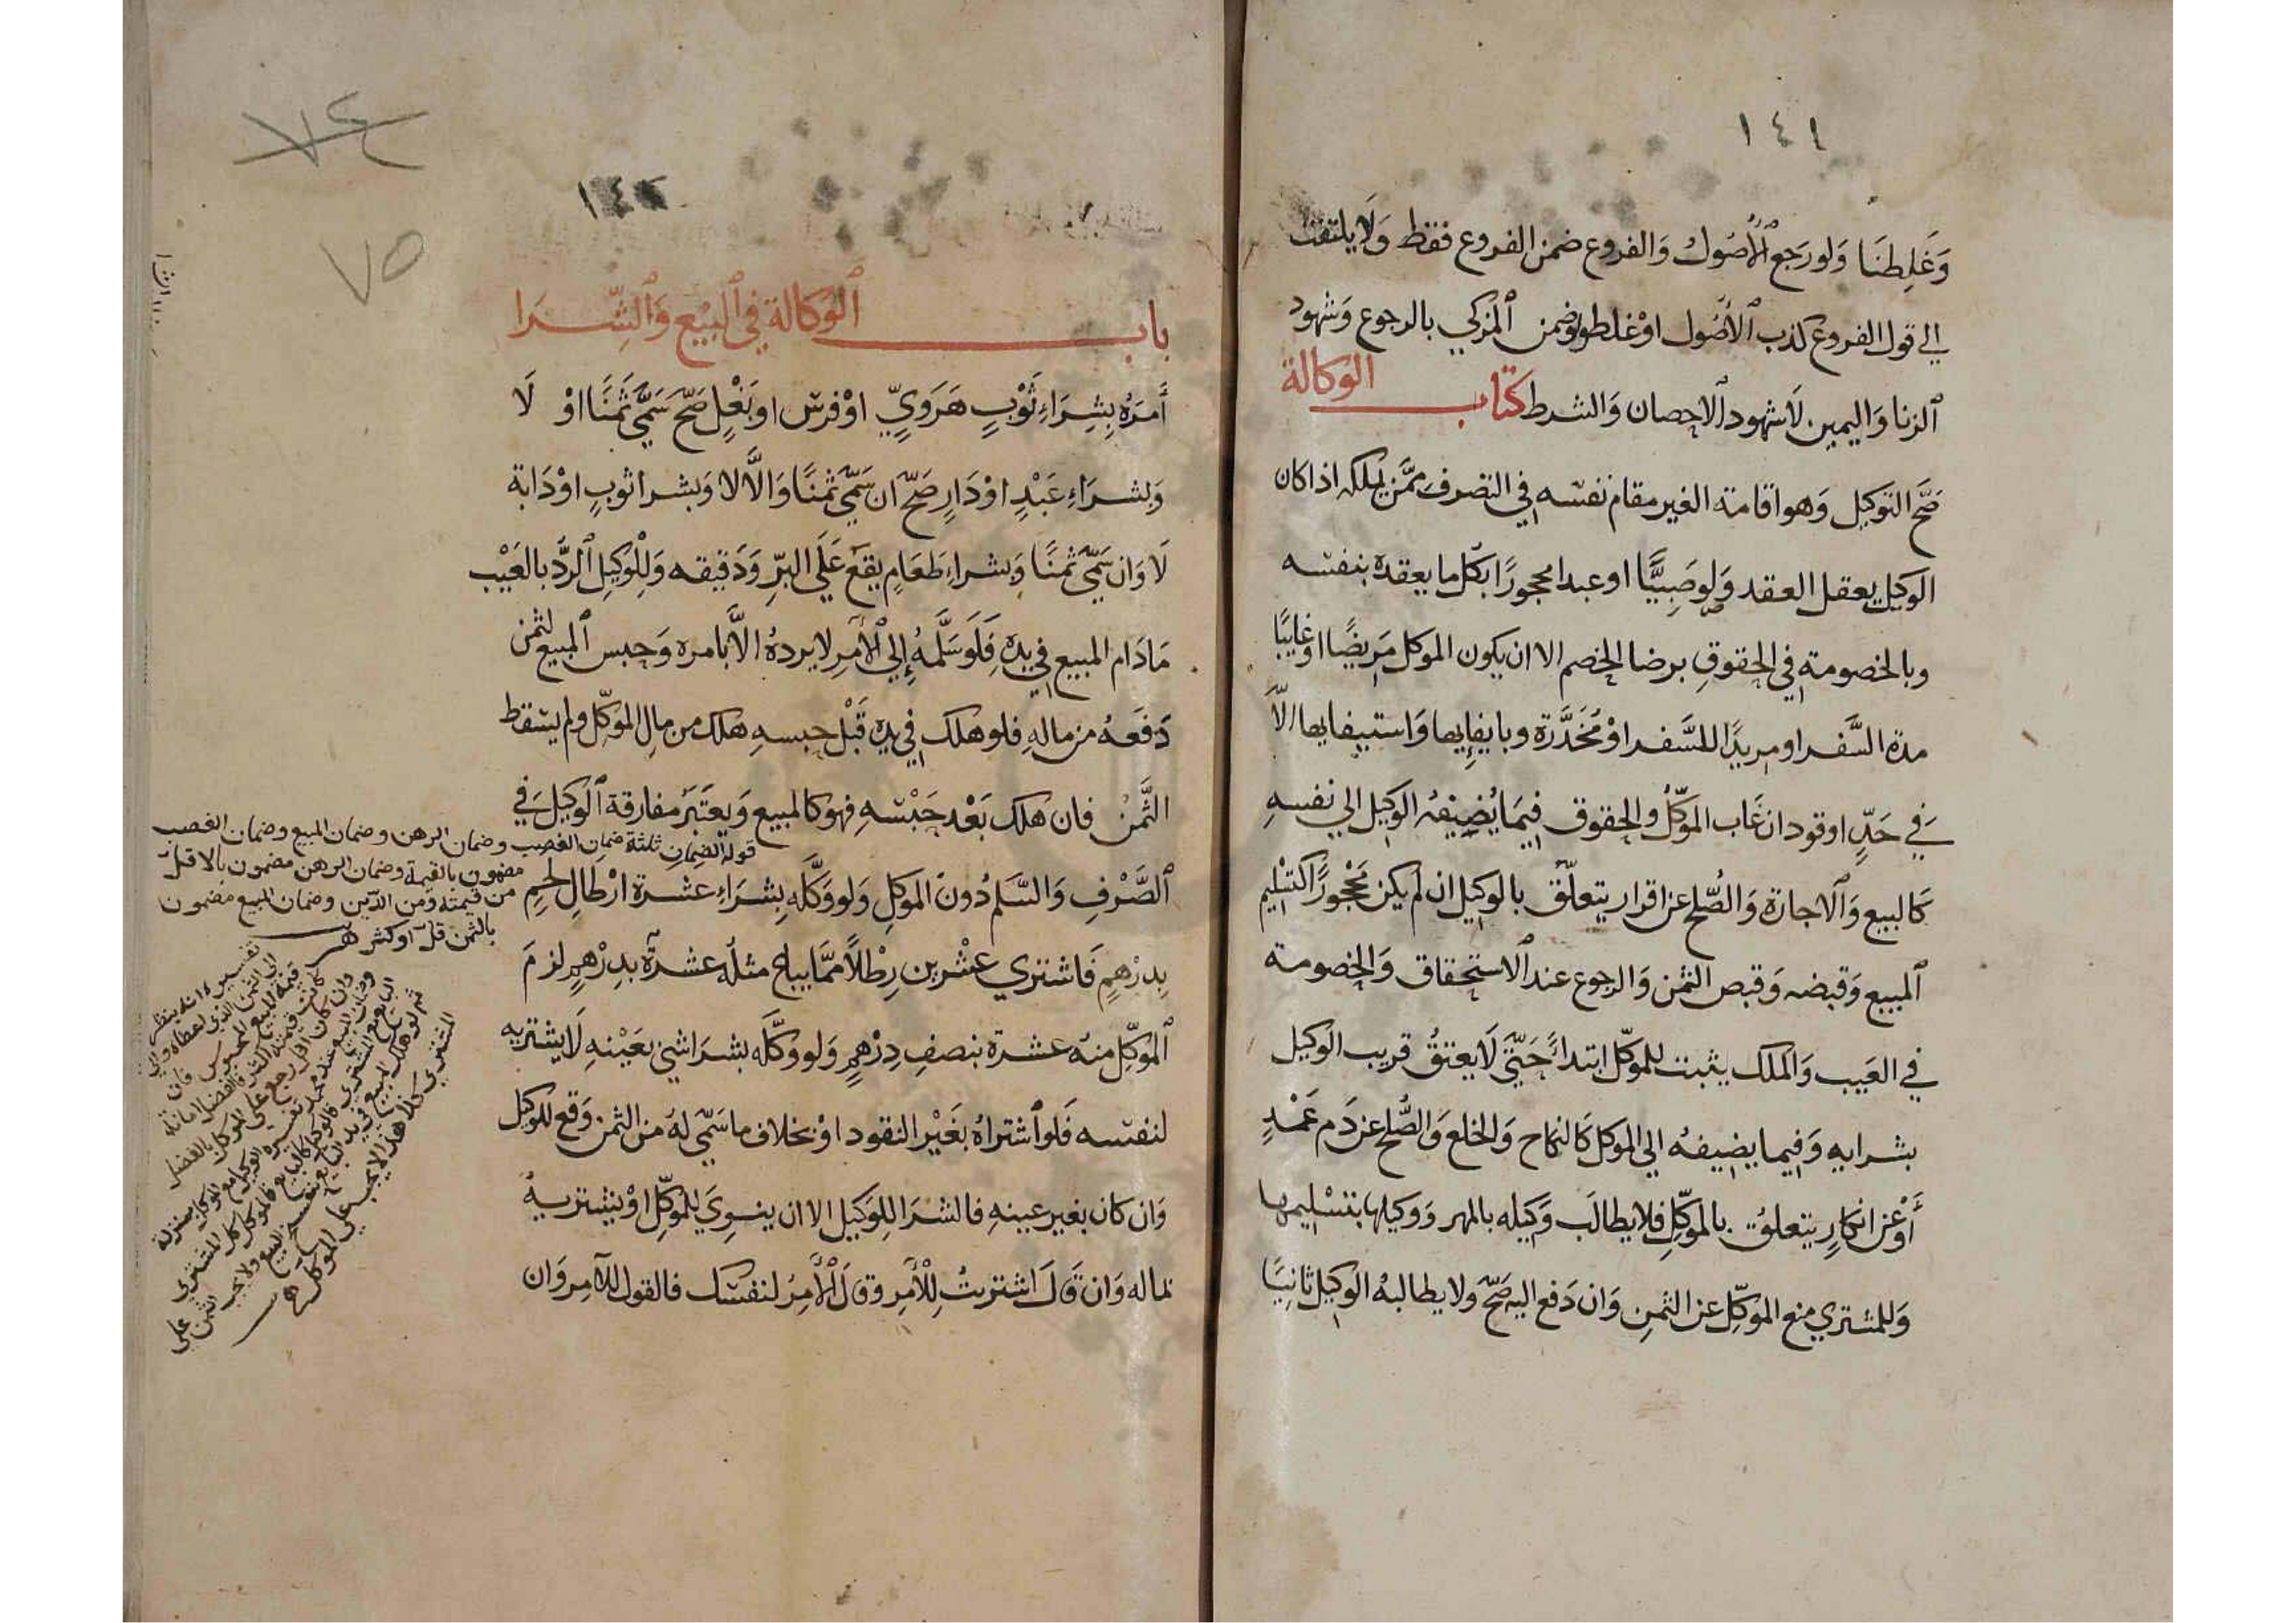 ١٤١
وَغَلِطنَا وَلو رَجع الأصُول وَالفروع ضمن الفروع فقط وَلَا يلتفت
إلي قول الفروع كذب الأصُول اوْ غلطوا وَضمن المزكي بالرجوع وَشهود
الزنا وَاليمين لَا شهود الاحصان وَالشرط كتاب الوكالة
صَحَّ التوكيل وَهو اقامة الغير مقام نفسه في التصرف ممَّن يملكه اذا كان
الوكيل يعقل العقد وَلو صَبِيًّا او عبدا محجورًا بكل ما يعقده بنفسه
وبالخصومة في الحقوقِ برضا الخصم الا ان يكون الموكل مَريضًا اوْ غايبًا
مدة السَّفر او مريدًا للسَّفر اوْ مُخَدَّرَة وبايفايها وَاستيفايها الاّ
في حَدٍّ او قود ان غَاب الموَكّلُ والحقوق فِيمَا يُضِيفهُ الوكيل الي نفسهِ
كَالبيع وَالاجارة وَالصُّلح عن اقرار يتعلّق بالوكيل ان لَم يكن مَحْجورًا كتسْليم
المبيع وَقبضه وَقبض الثمن وَالرجوع عند الاستحقاق وَالخصومة
في العَيب وَالملك يثبت للموَكّل ابتداءً حَتّي لَا يعتقُ قريب الوكيل
بشرايه وَفيما يضيفهُ الي الموكل كَالنكاح وَالخلع وَالصُّلح عن دَم عَمْدٍ
أوْ عن انكارٍ يتعلقُ بالموَكّلِ فلا يطالَب وَكيله بالمهر وَوكيلها بتسْليمها
وَللمشتري منع الموَكّل عن الثمنِ وَان دَفع اليه صَحّ ولا يطالبهُ الوكيل ثانيًا
٧٤
٧٥
باب الوَكالة في البيْع وَالشِّرَا
أمرَهُ بِشِرَاءِ ثَوْبٍ هَرَوِيّ اوْ فرس او بَغْلٍ صَحّ سَمَّي ثَمَنًا اوْ لَا
وَبشرَاءِ عَبْدٍ اوْ دَارٍ صَحّ ان سَمَّي ثمنًا وَالَّا لا وَبشرا ثوبٍ اوْ دَابة
لَا وَان سَمَّي ثمنًا وَبشراء طَعَامٍ يقع عَلَي البرِّ وَدَقيقه وَلِلْوكيل الردّ بالعَيْب
مَا دَام المبيع في يدِه فَلَو سَلَّمهُ إلي الْآمرِ لا يردهُ الَّا بامره وَحبس المبيع لثمن
دَفعَهُ من مالهِ فلو هلك في يدِه قَبْل حبسهِ هلك من مال الموَكّل ولم يسقط
الثَّمنُ فان هَلك بَعْد حَبْسهِ فهو كالمبيع وَيعتَبرُ مفارقة الوكيل في
الصَّرْفِ وَالسَّلَم دُون الموَكل وَلو وَكَّله بِشرَاءِ عشرة ارْطالِ لحم
بدرْهمٍ فَاشتري عِشْرين رِطْلًا ممَّا يباع مثلُهُ عشرةٌ بدِرْهمٍ لزمَ
الموَكّل منهُ عشرة بنصفِ دِرْهمٍ وَلو وكَّله بشرا شيْ بعَيْنهِ لَا يشتريه
لنفسه فَلو اشتراهُ بغَيْر النقود اوْ بخلاف ما سَمّي لهُ من الثمن وَقع للوكيل
وَان كان بغير عينهِ فالشرا للوَكيل الا ان ينوِيَ للموَكّل اوْ يشتريهُ
بماله وَان قَالَ اشتريتُ لِلْآمر وَقَالَ الْآمرُ لنفسك فالقول للآمر وَان
قوله الضمان ثلثة ضمان الغصب وضمان الرهن وضمان المبيع وضمان الغصب
مضمون بالقيمة وضمان الرهن مضمون بالاقل
من قيمته ومن الدّين وضمان المبيع مضمون
بالثمن قلّ او كثر